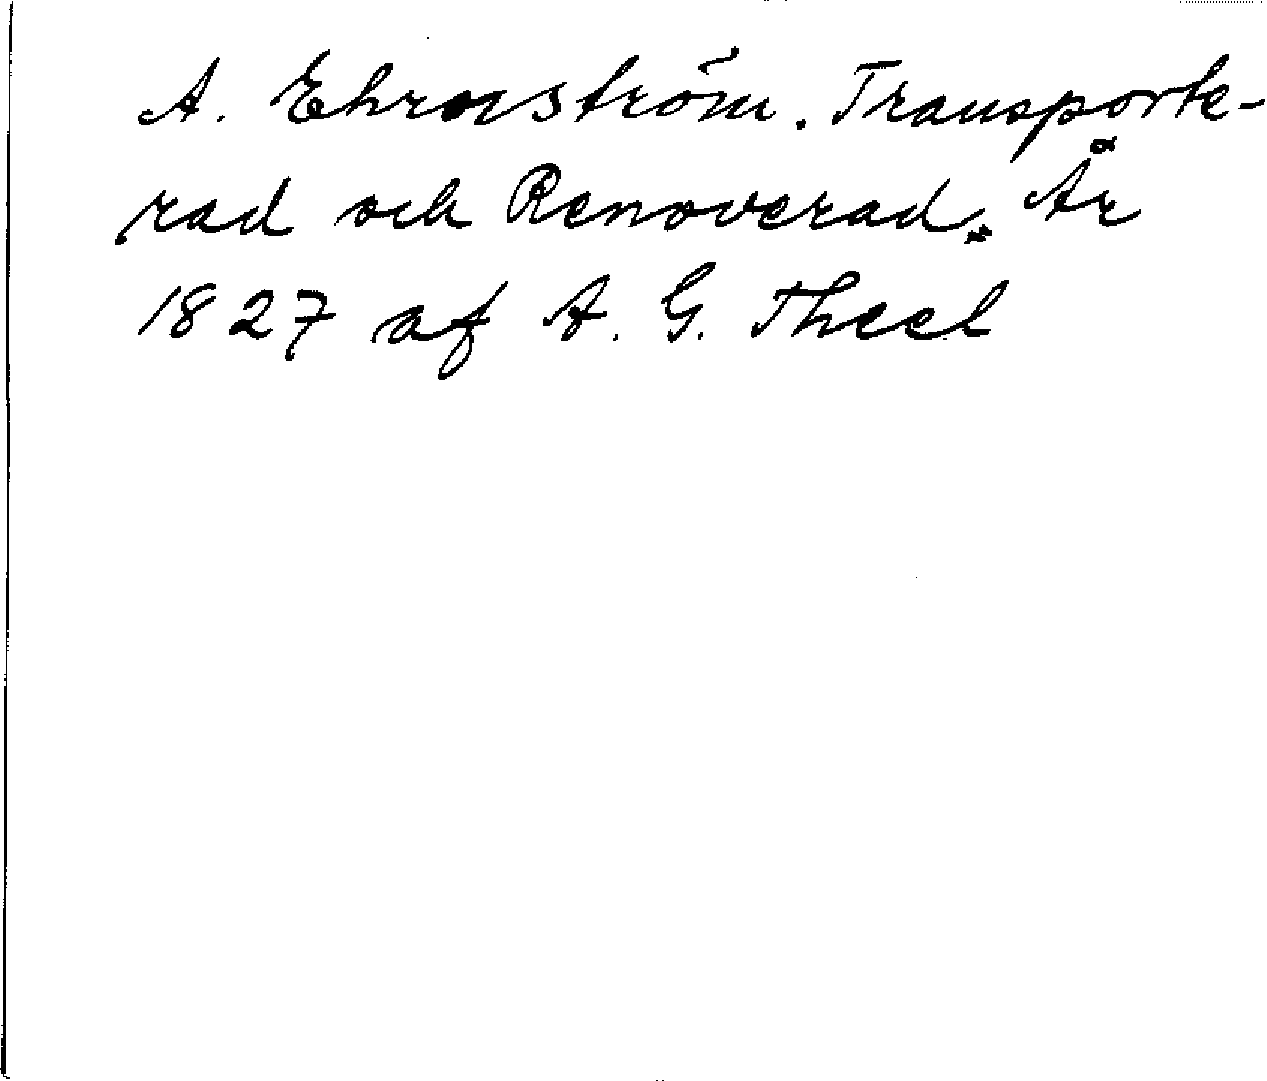 A. Ehrnström. Transporte-
rad och Renoverad. År
1827 af A. G. Theel